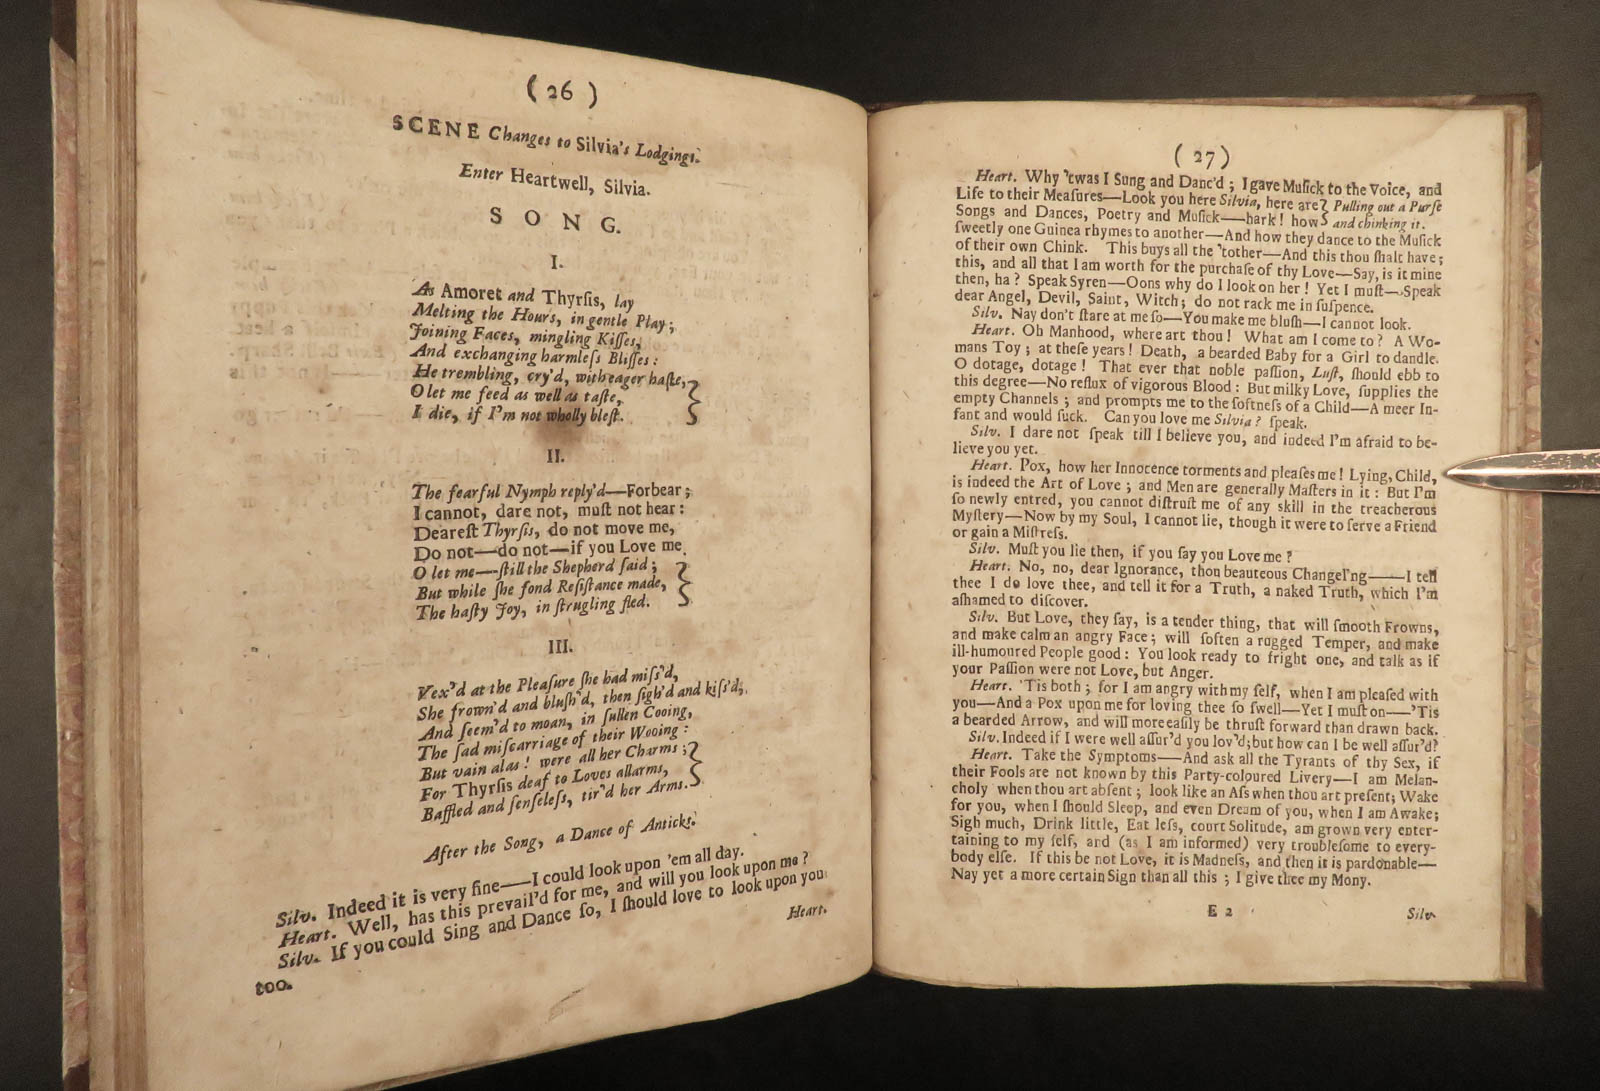 ( 26 )
SCENE Changes to Silvia's Lodgings.
Enter Heartwell, Silvia.
SONG.
I.
As Amoret and Thyrſis, lay
Melting the Hours, in gentle Play;
Joining Faces, mingling Kiſſes,
And exchanging harmleſs Bliſſes:
He trembling, cry'd, with eager haſte,
O let me feed as well as taſte,
I die, if I'm not wholly bleſt.
II.
The fearful Nymph reply'd—Forbear;
I cannot, dare not, muſt not hear:
Deareſt Thyrſis, do not move me,
Do not—do not—if you Love me.
O let me—ſtill the Shepherd ſaid;
But while ſhe fond Reſiſtance made,
The haſty Joy, in ſtrugling fled.
III.
Vex'd at the Pleaſure ſhe had miſs'd,
She frown'd and bluſh'd, then ſigh'd and kiſs'd,
And ſeem'd to moan, in ſullen Cooing,
The ſad miſcarriage of their Wooing:
But vain alas! were all her Charms;
For Thyrſis deaf to Loves allarms,
Baffled and ſenſeleſs, tir'd her Arms.
After the Song, a Dance of Anticks.
Silv. Indeed it is very fine—I could look upon 'em all day.
Heart. Well, has this prevail'd for me, and will you look upon me?
Silv. If you could Sing and Dance ſo, I ſhould love to look upon you
too.
Heart.
( 27 )
Heart. Why 'twas I Sung and Danc'd; I gave Muſick to the Voice, and
Life to their Meaſures—Look you here Silvia, here are Pulling out a Purſe
Songs and Dances, Poetry and Muſick—hark! how and chinking it.
ſweetly one Guinea rhymes to another—And how they dance to the Muſick
of their own Chink. This buys all the 'tother—And this thou ſhalt have;
this, and all that I am worth for the purchaſe of thy Love—Say, is it mine
then, ha? Speak Syren—Oons why do I look on her! Yet I muſt—Speak
dear Angel, Devil, Saint, Witch; do not rack me in ſuſpence.
Silv. Nay don't ſtare at me ſo—You make me bluſh—I cannot look.
Heart. Oh Manhood, where art thou! What am I come to? A Wo-
mans Toy; at theſe years! Death, a bearded Baby for a Girl to dandle.
O dotage, dotage! That ever that noble paſſion, Luſt, ſhould ebb to
this degree—No reflux of vigorous Blood: But milky Love, ſupplies the
empty Channels; and prompts me to the ſoftneſs of a Child—A meer In-
fant and would ſuck. Can you love me Silvia? ſpeak.
Silv. I dare not ſpeak till I believe you, and indeed I'm afraid to be-
lieve you yet.
Heart. Pox, how her Innocence torments and pleaſes me! Lying, Child,
is indeed the Art of Love; and Men are generally Maſters in it: But I'm
ſo newly entred, you cannot diſtruſt me of any skill in the treacherous
Myſtery—Now by my Soul, I cannot lie, though it were to ſerve a Friend
or gain a Miſtreſs.
Silv. Muſt you lie then, if you ſay you Love me?
Heart. No, no, dear Ignorance, thou beauteous Changel'ng—I tell
thee I do love thee, and tell it for a Truth, a naked Truth, which I'm
aſhamed to diſcover.
Silv. But Love, they ſay, is a tender thing, that will ſmooth Frowns,
and make calm an angry Face; will ſoften a rugged Temper, and make
ill-humoured People good: You look ready to fright one, and talk as if
your Paſſion were not Love, but Anger.
Heart. 'Tis both; for I am angry with my ſelf, when I am pleaſed with
you—And a Pox upon me for loving thee ſo ſwell—Yet I muſt on—'Tis
a bearded Arrow, and will more eaſily be thruſt forward than drawn back.
Silv. Indeed if I were well aſſur'd you lov'd; but how can I be well aſſur'd?
Heart. Take the Symptoms—And ask all the Tyrants of thy Sex, if
their Fools are not known by this Party-coloured Livery—I am Melan-
choly when thou art abſent; look like an Aſs when thou art preſent; Wake
for you, when I ſhould Sleep, and even Dream of you, when I am Awake;
Sigh much, Drink little, Eat leſs, court Solitude, am grown very enter-
taining to my ſelf, and (as I am informed) very troubleſome to every-
body elſe. If this be not Love, it is Madneſs, and then it is pardonable—
Nay yet a more certain Sign than all this; I give thee my Mony.
E 2
Silv.